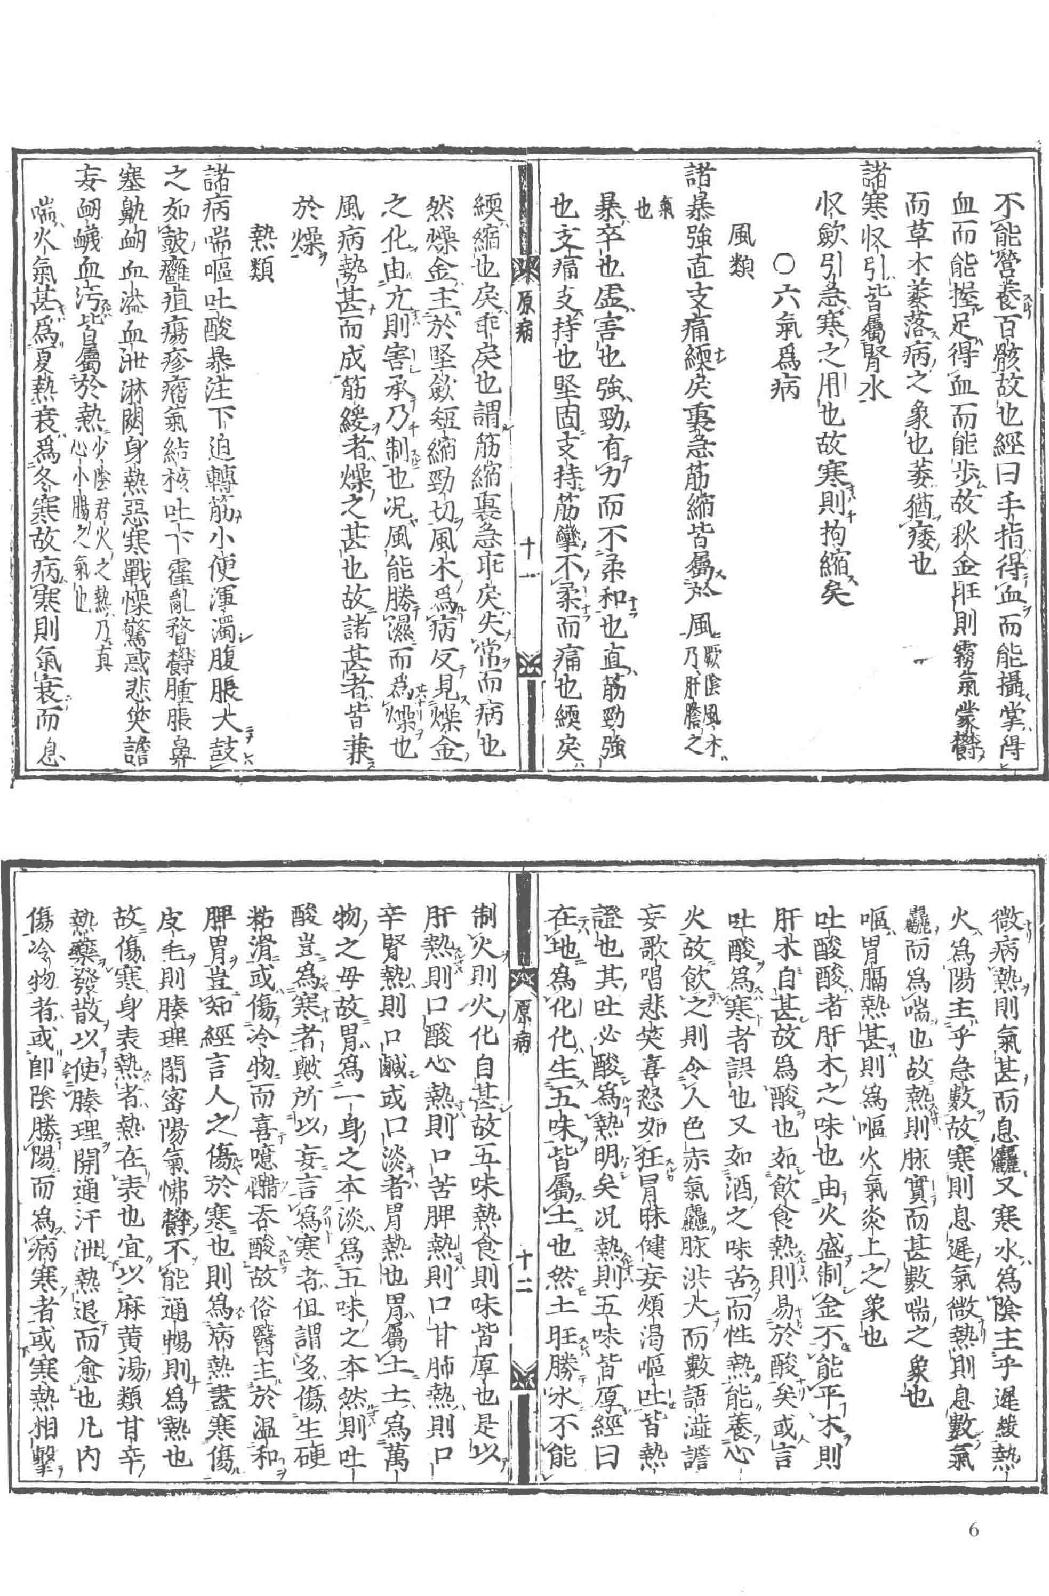 不能營養百骸故也經曰手指得血而能攝掌得
血而能握足得血而能步故秋金旺則霧氣蒙鬱
而草木萎落病之象也萎猶痿也
諸寒收引皆屬腎水
収斂引急寒之用也故寒則拘縮矣
〇六氣爲病
風類
諸暴強直支痛緛戾裏急筋縮皆屬於風厥陰風木乃肝膽之
氣也
暴卒也虐害也強勁有力而不柔和也直筋勁強
也支痛支持也堅固支持筋攣不柔而痛也緛戾
原病
十一
緛縮也戾乖戾也謂筋縮裏急乖戾失常而病也
然燥金主於堅斂短縮勁切風木爲病反見燥金
之化由亢則害承乃制也况風能勝濕而爲燥也
風病勢甚而成筋緩者燥之甚也故諸甚者皆兼
於燥
熱類
諸病喘嘔吐酸暴注下迫轉筋小便渾濁腹脹大鼓
之如鼓癰疽瘍疹瘤氣結核吐下霍亂瞀鬱腫脹鼻
塞鼽衄血溢血泄淋閟身熱惡寒戰慄驚惑悲笑譫
妄衄衊血污皆屬於熱少陰君火之熱乃真心小腸之氣也
喘火氣甚爲夏熱衰爲冬寒故病寒則氣衰而息
微病熱則氣甚而息麤又寒水爲陰主乎遲緩熱
火爲陽主乎急數故寒則息遲氣微熱則息數氣
麤而爲喘也故熱則脉實而甚數喘之象也
嘔胃膈熱甚則爲嘔火氣炎上之象也
吐酸酸者肝木之味也由火盛制金不能平木則
肝木自甚故爲酸也如飲食熱則易於酸矣或言
吐酸爲寒者誤也又如酒之味苦而性熱能養心
火故飲之則令人色赤氣麤脉洪大而數語澁譫
妄歌唱悲笑喜怒如狂冒昧健妄煩渴嘔吐皆熱
證也其吐必酸爲熱明矣况熱則五味皆厚經曰
在地爲化化生五味皆屬土也然土旺勝水不能
原病
十二
制火則火化自甚故五味熱食則味皆厚也是以
肝熱則口酸心熱則口苦脾熱則口甘肺熱則口
辛腎熱則口鹹或口淡者胃熱也胃屬土土爲萬
物之母故胃爲一身之本淡爲五味之本然則吐
酸豈爲寒者歟所以妄言爲寒者但謂多傷生硬
粘滑或傷冷物而喜噫醋吞酸故俗醫主於温和
脾胃豈知經言人之傷於寒也則爲病熱蓋寒傷
皮毛則腠理閉密陽氣怫鬱不能通暢則爲熱也
故傷寒身表熱者熱在表也宜以麻黄湯類甘辛
熱藥發散以使腠理開通汗泄熱退而愈也凡内
傷冷物者或即陰勝陽而爲病寒者或寒熱相擊
6